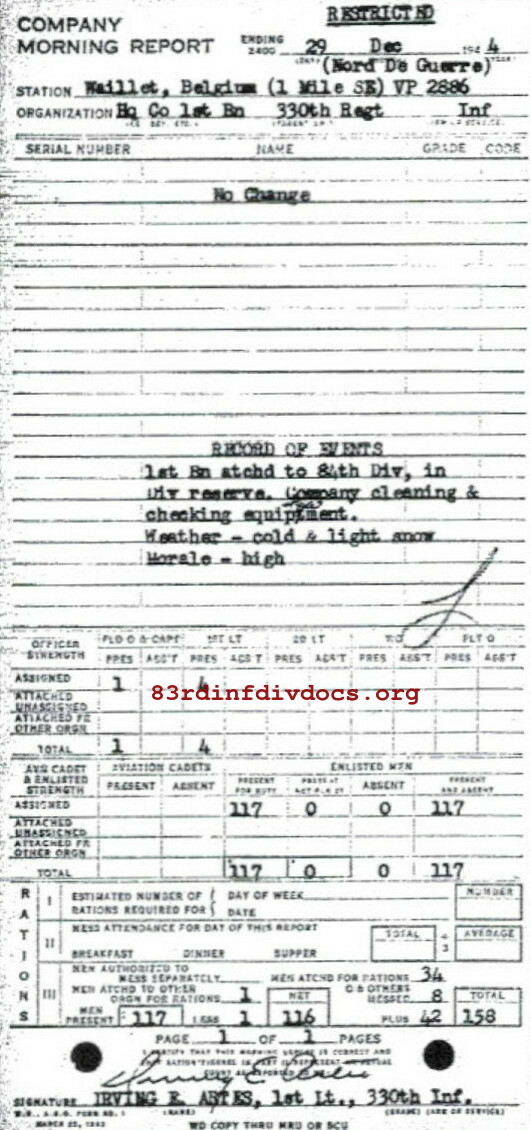 RESTRICTED
COMPANY
MORNING REPORT ENDING 2400 29 Dec 194 4
(Nord De Guerre)
STATION Waillet, Belgium (1 Mile SE) VP 2886
ORGANIZATION Hq Co 1st Bn 330th Regt Inf
SERIAL NUMBER NAME GRADE CODE
No Change
RECORD OF EVENTS
1st Bn atchd to 84th Div, in
Div reserve. Company cleaning &
checking equiptment.
Weather - cold & light snow
Morale - high
OFFICER STRENGTH FLD O & CAPT 1ST LT 2D LT FLT O
PRES ABS'T PRES ABS'T PRES ABS'T PRES ABS'T PRES ABS'T
ASSIGNED 1 4
83rdinfdivdocs.org
ATTACHED UNASSIGNED
ATTACHED FR OTHER ORGN
TOTAL 1 4
AVN CADET & ENLISTED STRENGTH AVIATION CADETS ENLISTED MEN
PRESENT ABSENT PRESENT FOR DUTY ABSENT PRESENT AND ABSENT
ASSIGNED 117 0 0 117
ATTACHED UNASSIGNED
ATTACHED FR OTHER ORGN
TOTAL 117 0 0 117
RATIONS
I ESTIMATED NUMBER OF RATIONS REQUIRED FOR { DAY OF WEEK DATE NUMBER
II MESS ATTENDANCE FOR DAY OF THIS REPORT TOTAL ÷ 3 AVERAGE
BREAKFAST DINNER SUPPER
III MEN AUTHORIZED TO MESS SEPARATELY MEN ATCHD FOR RATIONS 34
MEN ATCHD TO OTHER ORGN FOR RATIONS 1 NET O & OTHERS MESSED 8 TOTAL
MEN PRESENT 117 LESS 1 116 PLUS 42 158
PAGE 1 OF 1 PAGES
I CERTIFY THAT THIS MORNING REPORT IS CORRECT AND
SIGNATURE IRVING E. ARTES, 1st Lt., 330th Inf.
W.D., A.G.O. FORM NO. 1 (NAME) (GRADE) (ARM OR SERVICE)
MARCH 25, 1943
WD COPY THRU MRU OR SCU